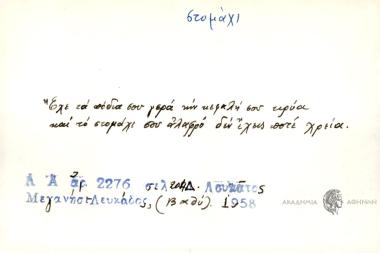 στομάχι
"Έχε τά πόδια σου γερά τήν κεφαλή σου κρύα
καί τό στομάχι σου αλαφρό δέν έχεις ποτέ χρεία.
Λ Α ἀρ. 2276 σελ. Δ. Λουκάτος
Μεγανήσι Λευκάδος, (Βαθύ). 1958
ΑΚΑΔΗΜΙΑ ΑΘΗΝΩΝ